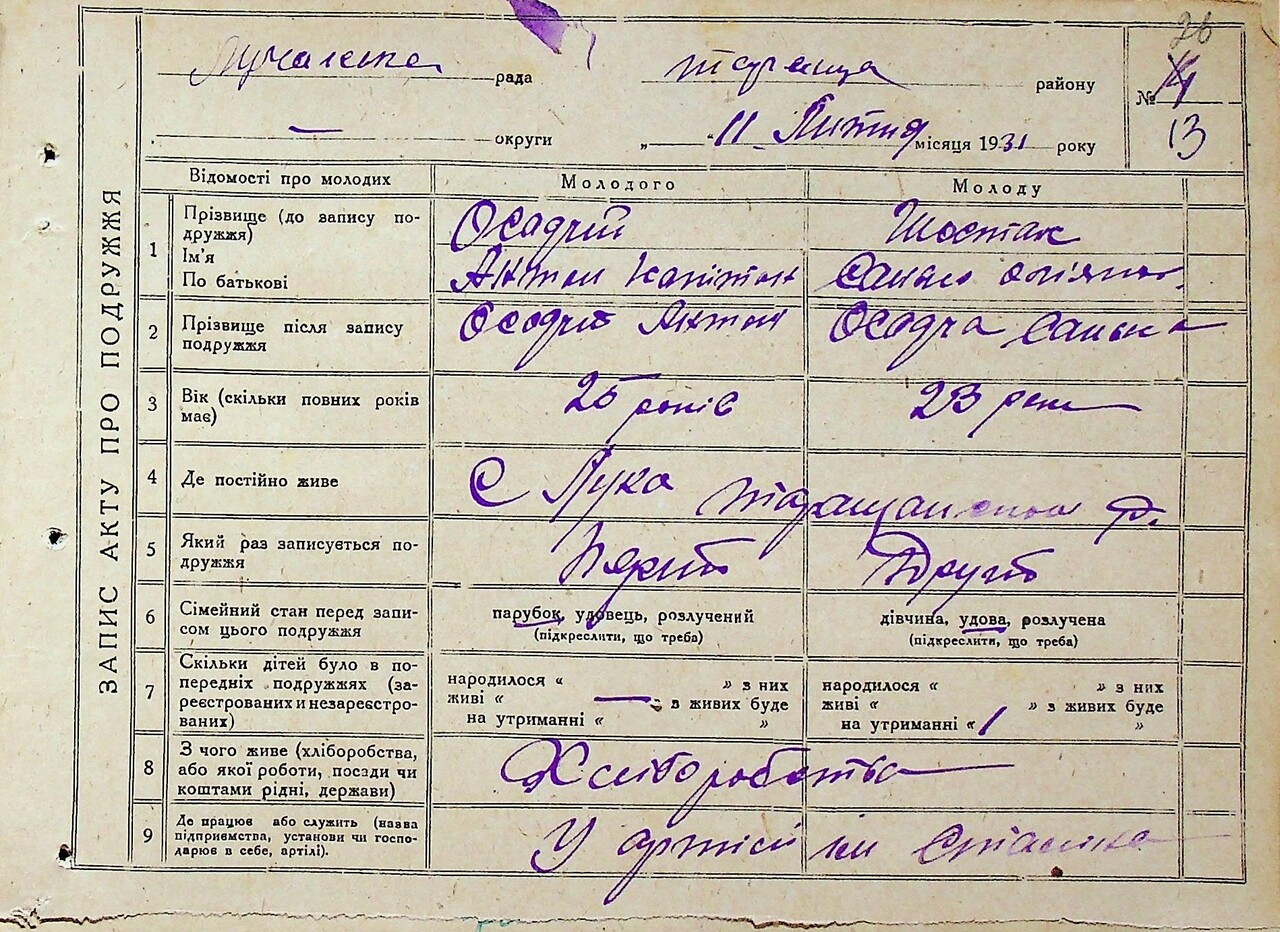 26
Лучанська рада Таращ району
№ 14
13
— округи „ — “ 11 Лютия місяця 1931 року
ЗАПИС АКТУ ПРО ПОДРУЖЖЯ
Відомості про молодих Молодого Молоду
1 Прізвище (до запису по-
дружжя) Осадчий Шостак
Ім'я
По батькові Антон Капітон Санько
2 Прізвище після запису
подружжя Осадчий Антон Осадча Санька
3 Вік (скільки повних років
має) 25 років 23 роки
4 Де постійно живе С Лука Таращанського р.
5 Який раз записується по-
дружжя Перший Другий
6 Сімейний стан перед запи-
сом цього подружжя парубок, удовець, розлучений дівчина, удова, розлучена
(підкреслити, що треба) (підкреслити, що треба)
7 Скільки дітей було в по-
передніх подружжях (за-
реєстрованих и незареєстро-
ваних)
народилося « » з них народилося « » з них
живі « — » з живих буде живі « » з живих буде
на утриманні « » на утриманні « 1 »
8 З чого живе (хліборобства,
або якої роботи, посади чи
коштами рідні, держави) Хліборобства
9 Де працює або служить (назва
підприємства, установи чи госпо-
дарює в себе, артілі). У артілі ім Сталіна